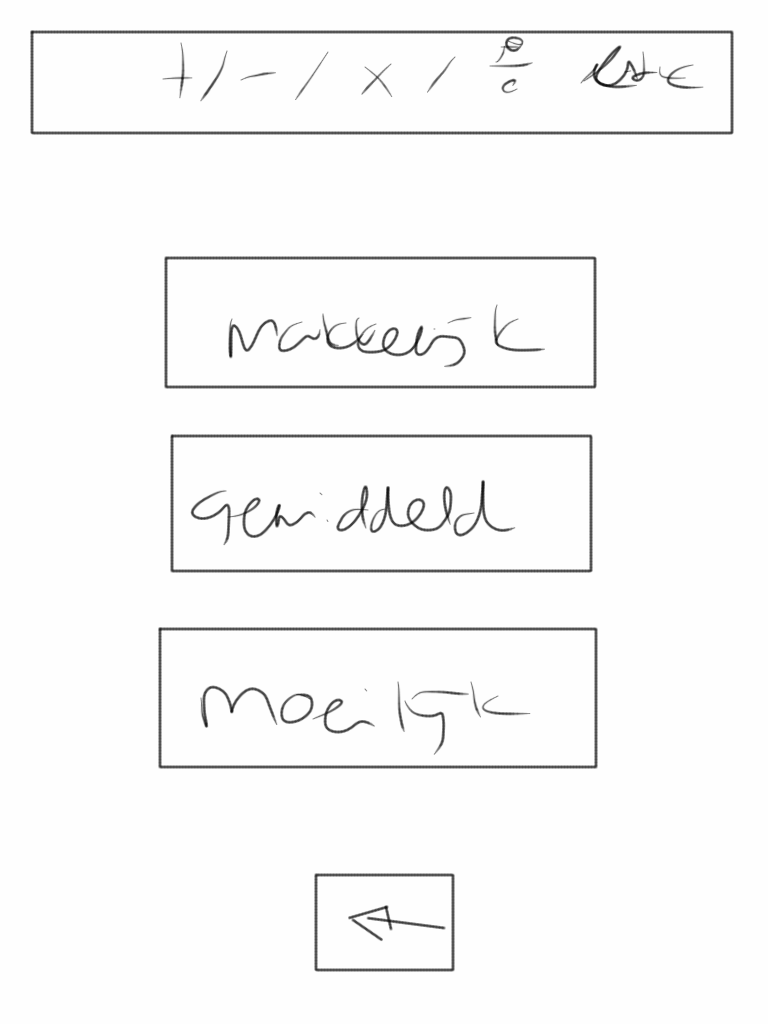 + / - / x / etc
makkelijk
gemiddeld
moeilijk